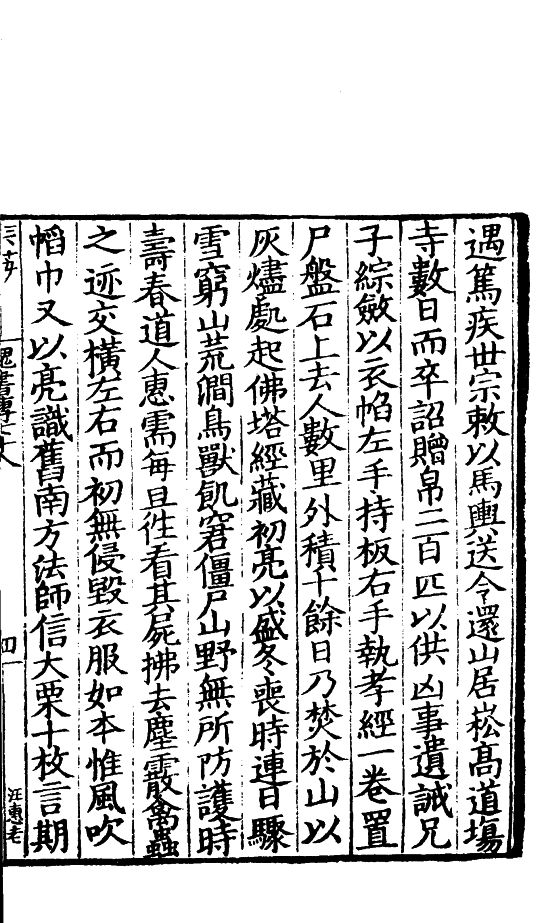 遇篤疾世宗敕以馬輿送令還山居崧高道場
寺數日而卒詔贈帛二百匹以供凶事遺誡兄
子綜斂以衣帢左手持板右手執孝經一卷置
尸盤石上去人數里外積十餘日乃焚於山以
灰燼處起佛塔經藏初亮以盛冬喪時連日驟
雪窮山荒澗鳥獸飢窘僵尸山野無所防護時
壽春道人惠需每旦往看其屍拂去塵霰禽蟲
之迹交橫左右而初無侵毀衣服如本惟風吹
帢巾又以亮識舊南方法師信大栗十枚言期
魏書傳
四
汪惠老